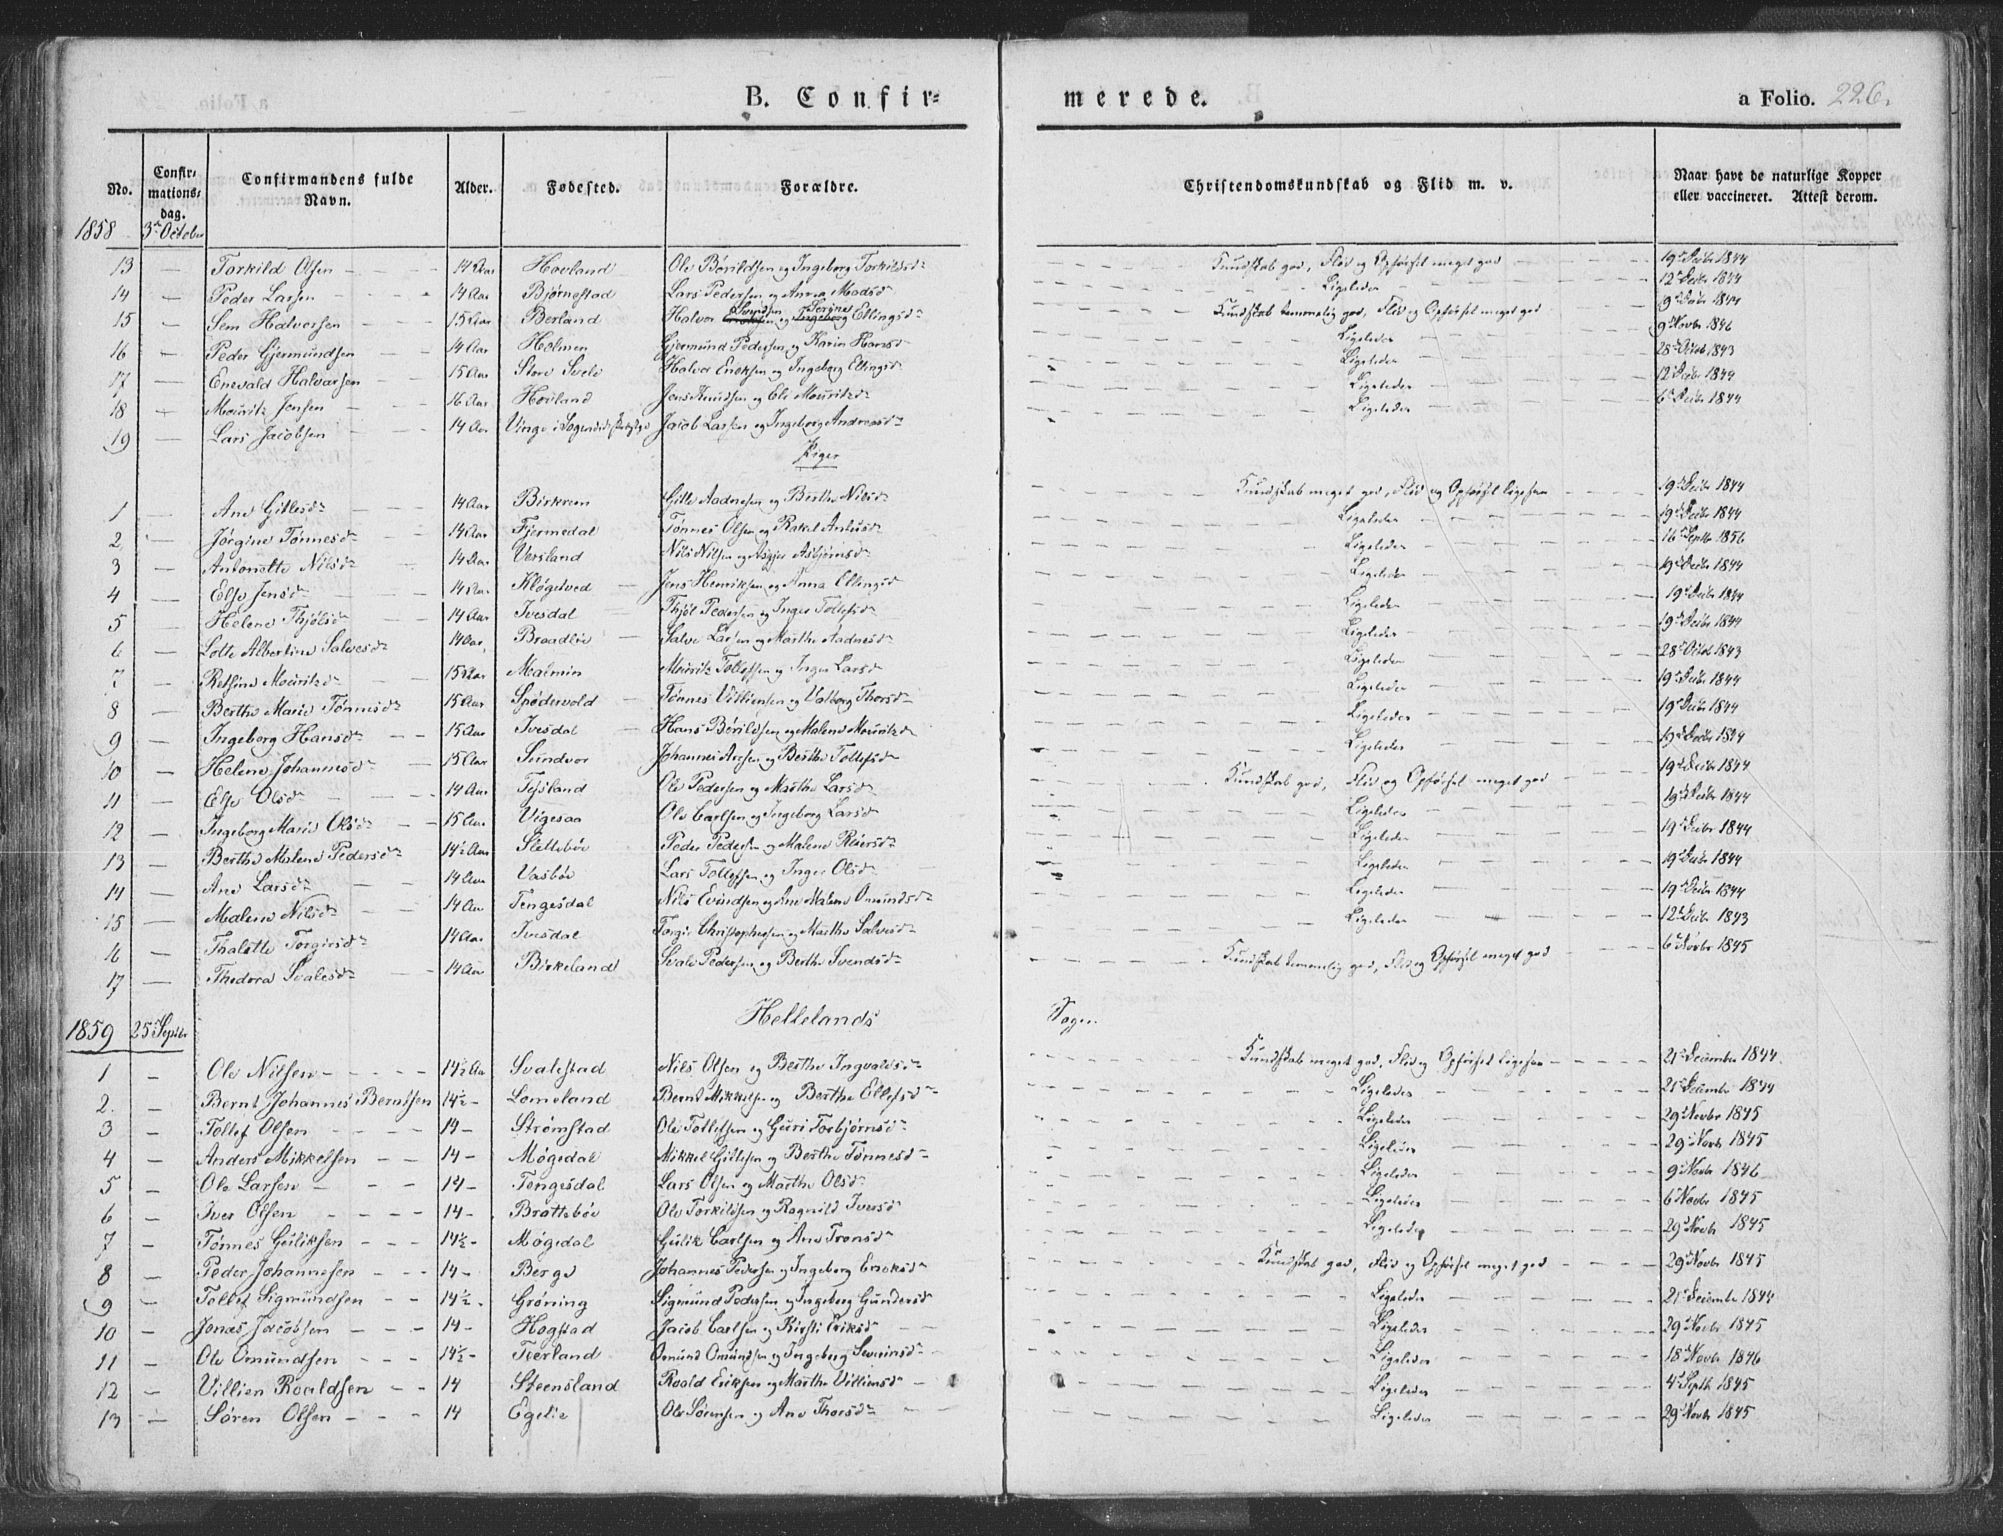 B. Confir= merede. a Folio. 226.
No. Confirmations-dag. Confirmandens fulde Navn. Alder. Fødested. Forældre. Christendomskundskab og Flid m. v. Naar havt de naturlige Kopper eller vaccineret. Attest derom.
1858 3die October
13 — Torkild Olsen 14 Aar Hovland Ole Børildsen og Ingeborg Torkildsdr Kundskab god, Flid og Opførsel meget god 19de Decbr 1844
14 — Peder Larsen 14 Aar Bjørnestad Lars Pedersen og Anna Madsdr Ligeledes 12te Decbr 1843
15 — Sem Halversen 15 Aar Berland Halvor Svendsen og Serine Ellingsdr Kundskab temmelig god, Flid og Opførsel meget god 19de Decbr 1844
16 — Peder Gjermundsen 14 Aar Holmen Gjermund Pedersen og Karin Hansdr Ligeledes 9de Novbr 1846
17 — Enevald Halvorsen 15 Aar Store Svele Halvor Ericksen og Ingeborg Ellingsdr Ligeledes 28de Octob 1843
18 — Mouritz Jensen 16 Aar Hovland Jens Knudsen og Eli Mouritzdr Ligeledes 12te Decbr 1844
19 — Lars Jacobsen 14 Aar Vinge i Jacob Larsen og Ingeborg Andreasdr Ligeledes 6te Decbr 1844
Piger
1 — Ane Gitlesdr 14 Aar Birkrem Gitle Aadnesen og Berthe Nilsdr Kundskab meget god, Flid og Opførsel ligesaa 19de Decbr 1844
2 — Jørgine Tønnesdr 14 Aar Fjermedal Tønnes Olsen og Rakel Antusdr Ligeledes 19de Decbr 1844
3 — Antonette Nilsdr 14 Aar Versland Nils Nilsen og Asgjer Asbjørnsdr Ligeledes 16de Septbr 1856
4 — Else Jensdr 14 Aar Kløgetved Jens Henriksen og Anna Ellingsdr Ligeledes 19de Decbr 1844
5 — Helene Thjølsdr 14 Aar Ivesdal Thjøl Pedersen og Inger Tollefsdr Ligeledes 19de Decbr 1844
6 — Lotte Albertine Salvesdr 14 Aar Braadlie Salve Larsen og Marthe Aadnesdr Ligeledes 19de Decbr 1844
7 — Retsine Mouritzdr 15 Aar Malmin Mouritz Tollefsen og Inger Larsdr Ligeledes 28de Octob 1843
8 — Berthe Marie Tønnesdr 15 Aar Spødervold Tønnes Villiensen og Valborg Thorsdr Ligeledes 19de Decbr 1844
9 — Ingeborg Hansdr 15 Aar Ivesdal Hans Børildsen og Malene Mouritzdr Ligeledes 19de Decbr 1844
10 — Helene Johannesdr 15 Aar Sundvor Johannes Aresen og Berthe Tollefsdr Ligeledes 19de Decbr 1844
11 — Else Olsdr 14 Aar Tessland Ole Pedersen og Marthe Larsdr Kundskab god, Flid og Opførsel meget god 19de Decbr 1844
12 — Ingeborg Marie Olsdr 15 Aar Vigesaa Ole Carlsen og Ingeborg Larsdr Ligeledes 19de Decbr 1844
13 — Berthe Malene Pedersdr 14½ Aar Slettebøe Peder Pedersen og Malene Reiersdr Ligeledes 19de Decbr 1844
14 — Ane Larsdr 14 Aar Vasbøe Lars Tollefsen og Inger Olsdr Ligeledes 19de Decbr 1844
15 — Malene Nilsdr 14 Aar Tengesdal Nils Evindsen og Ane Malene Omundsdr Ligeledes 19de Decbr 1844
16 — Thalette Torgiersdr 14 Aar Ivesdal Torgier Christophersen og Marthe Salvesdr Ligeledes 12te Decbr 1843
17 — Thedora Svalesdr 14 Aar Birkeland Svale Pedersen og Berthe Svendsdr Kundskab temmelig god, Flid og Opførsel meget god 6te Novbr 1845
1859 25 Septbr Hellelands Sogn.
1 — Ole Nilsen 14½ Aar Svalestad Nils Olsen og Berthe Ingvaldsdr Kundskab meget god, Flid og Opførsel ligesaa 21de December 1844
2. — Bernt Johannes Berntsen 14½ — Lomeland Bernt Mikkelsen og Berthe Ellefsdr Ligeledes 21de December 1844
3 — Tollef Olsen 14 — Strømstad Ole Tollefsen og Guri Torbjørnsdr Ligeledes 29de Novbr 1845
4 — Anders Mikkelsen 14 — Møgedal Mikkel Gitlesen og Berthe Tønnesdr Ligeledes 29de Novbr 1845
5 — Ole Larsen 14 — Tengesdal Lars Olsen og Marthe Olsdr Ligeledes 9de Novbr 1846
6 — Iver Olsen 14 — Brattebøe Ole Torkildsen og Ragnild Iversdr Ligeledes 6te Novbr 1845
7 — Tønnes Guliksen 14½ — Møgedal Gulik Carlsen og Ane Tronsdr Ligeledes 29de Novbr 1845
8 — Peder Johannesen 14 — Berge Johannes Pedersen og Ingeborg Ericksdr Kundskab god, Flid og Opførsel meget god 29de Novbr 1845
9 — Tollef Sigmundsen 14½ — Grøning Sigmund Pedersen og Ingeborg Gundersdr Ligeledes 21de December 1844
10 — Jonas Jacobsen 14 — Hogstad Jacob Carlsen og Kirsti Eriksdr Ligeledes 29de Novbr 1845
11 — Ole Omundsen 14½ — Teerland Omund Omundsen og Ingeborg Severinsdr Ligeledes 18de Novbr 1846
12 — Villien Roaldsen 14 Steensland Roald Eriksen og Marthe Villiensdr Ligeledes 4de Septbr 1845
13 — Søren Olsen 14 Egelie Ole Sørensen og Ane Thorsdr Ligeledes 29de Novbr 1845